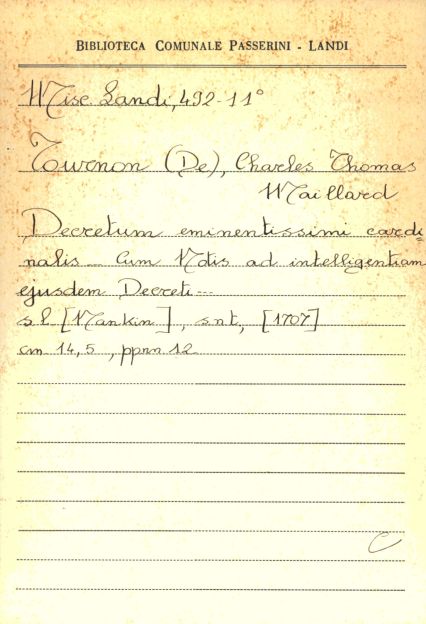 BIBLIOTECA COMUNALE PASSERINI - LANDI
Misc. Landi, 492-11°
Tournon (De), Charles Thomas
Maillard
Decretum eminentissimi cardi=
nalis - Cum Notis ad intelligentiam
ejusdem Decreti---
s.l [Nankin], s.n.t, [1707]
cm 14,5, ppnn 12
C